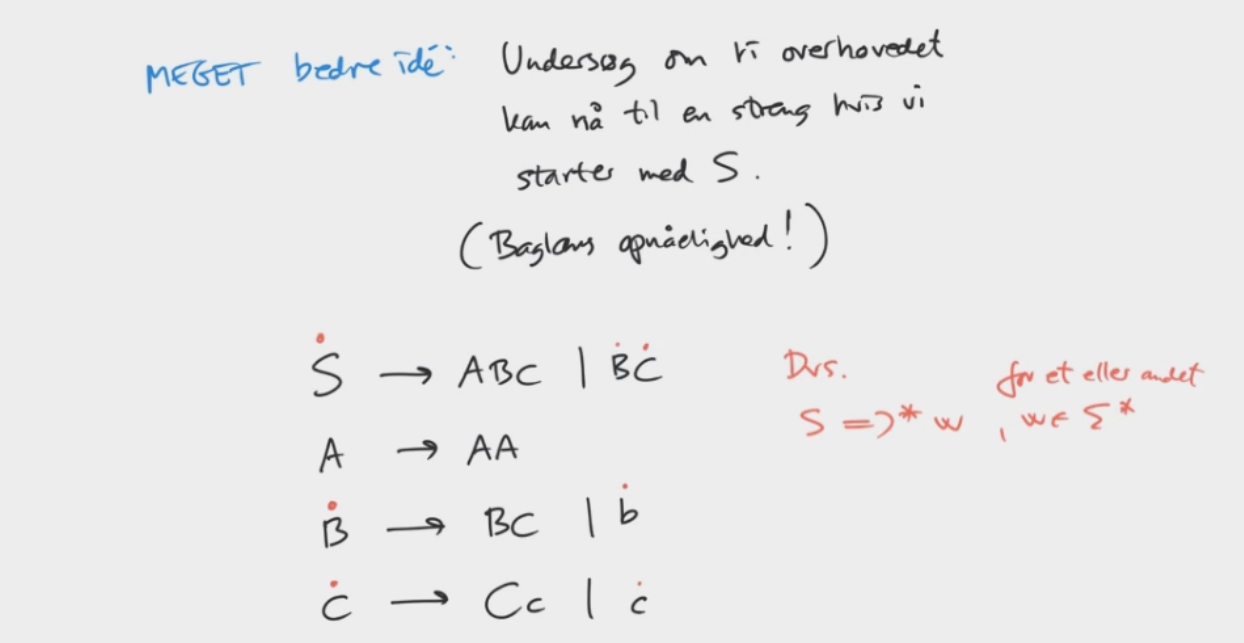 MEGET bedre idé: Undersøg om vi overhovedet
kan nå til en streng hvis vi
starter med S.
(Baglæns opnåelighed!)
S → ABC | BC
Dvs. for et eller andet
S ⇒* w , w ∈ Σ*
A → AA
B → BC | b
C → Cc | c